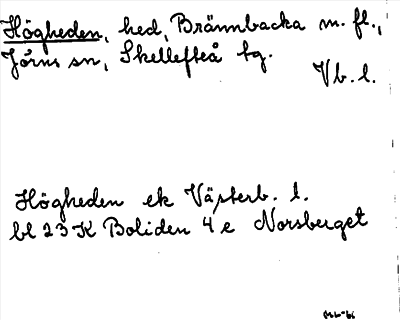 Högheden, hed, Brännbacka m. fl.,
Jörns sn, Skellefteå tg.
Vb. l.
Högheden ek Västerb. l.
bl 23 K Boliden 4 e Norsberget